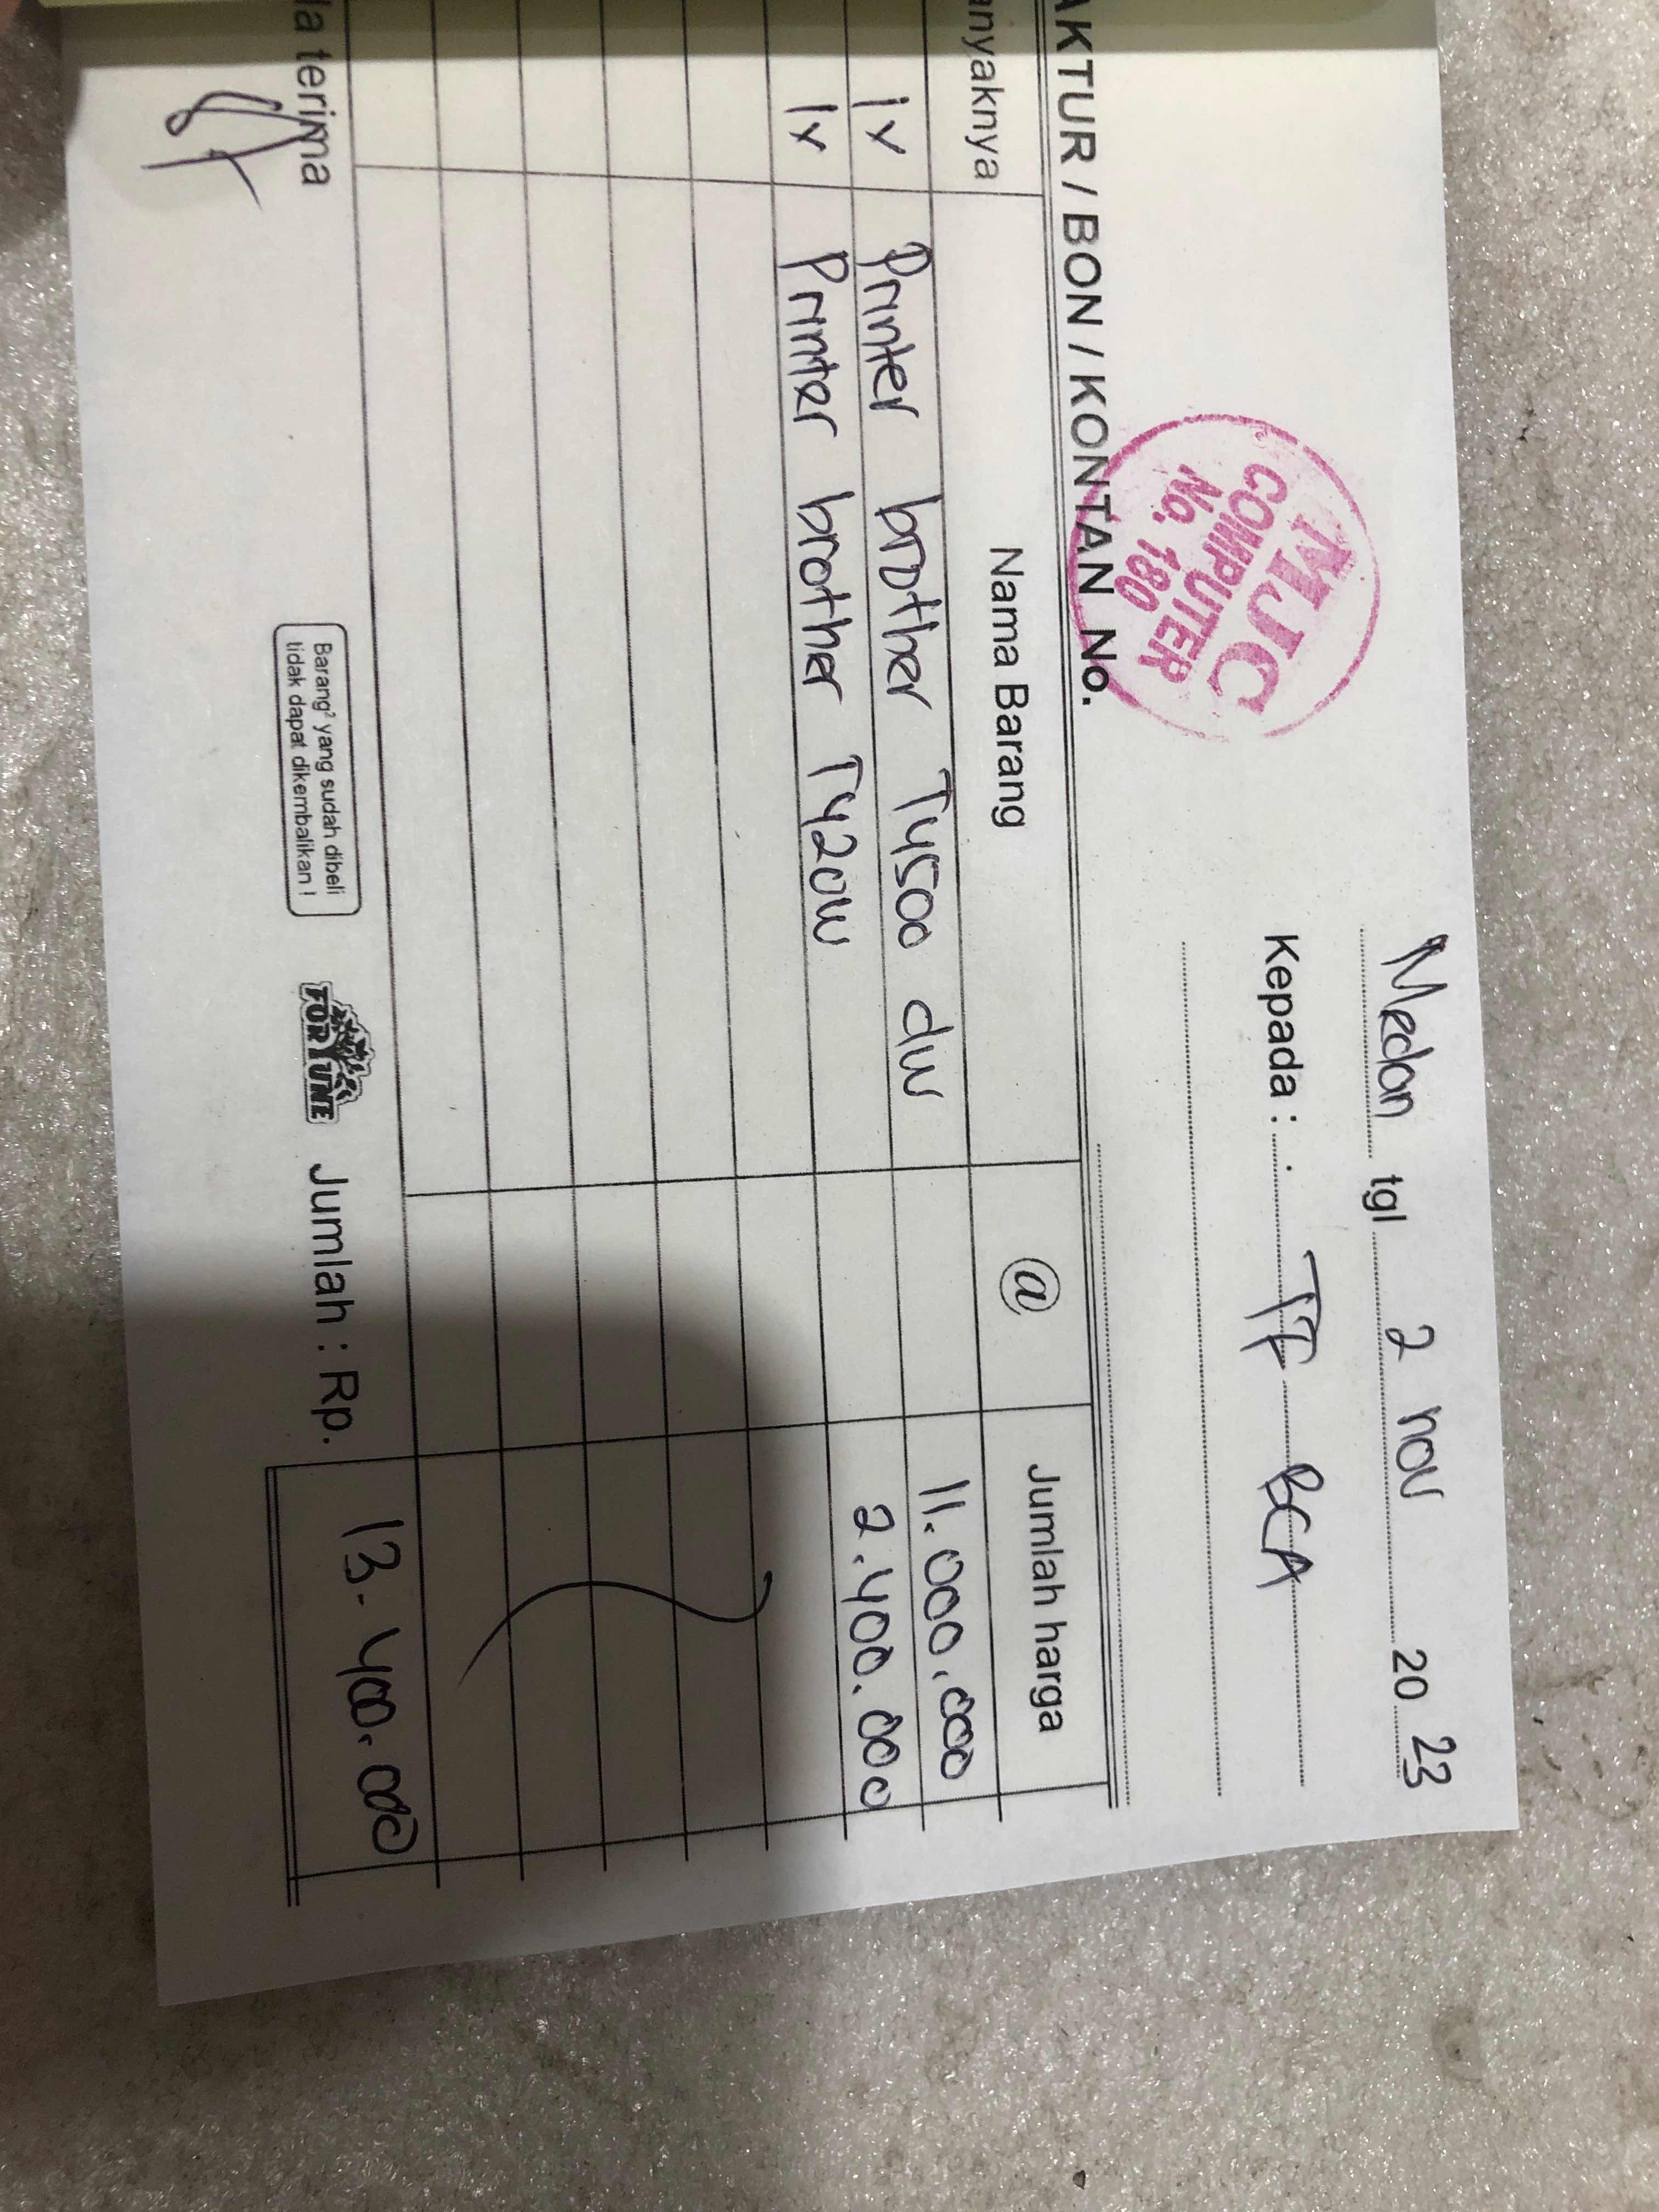 Medan tgl 2 nov 20 23
MJC
COMPUTER
No. 180
Kepada : TF BCA
AKTUR / BON / KONTAN No.
anyaknya Nama Barang @ Jumlah harga
1x Printer brother T4500 dw 11.000.000
1x Printer brother T420w 2.400.000
da terima
Barang² yang sudah dibeli
tidak dapat dikembalikan !
FORTUNE
Jumlah : Rp. 13.400.000